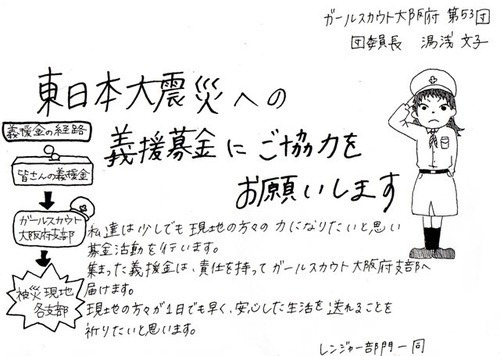 ガールスカウト大阪府 第53団
団委員長 湯浅 文子
東日本大震災への
義援募金にご協力を
お願いします
義援金の経路
皆さんの義援金
ガールスカウト
大阪府支部
被災現地
各支部
私達は少しでも現地の方々の力になりたいと思い
募金活動を行います。
集まった義援金は、責任を持ってガールスカウト大阪府支部へ
届けます。
現地の方々が1日でも早く、安心した生活を送れることを
祈りたいと思います。
レンジャー部門一同